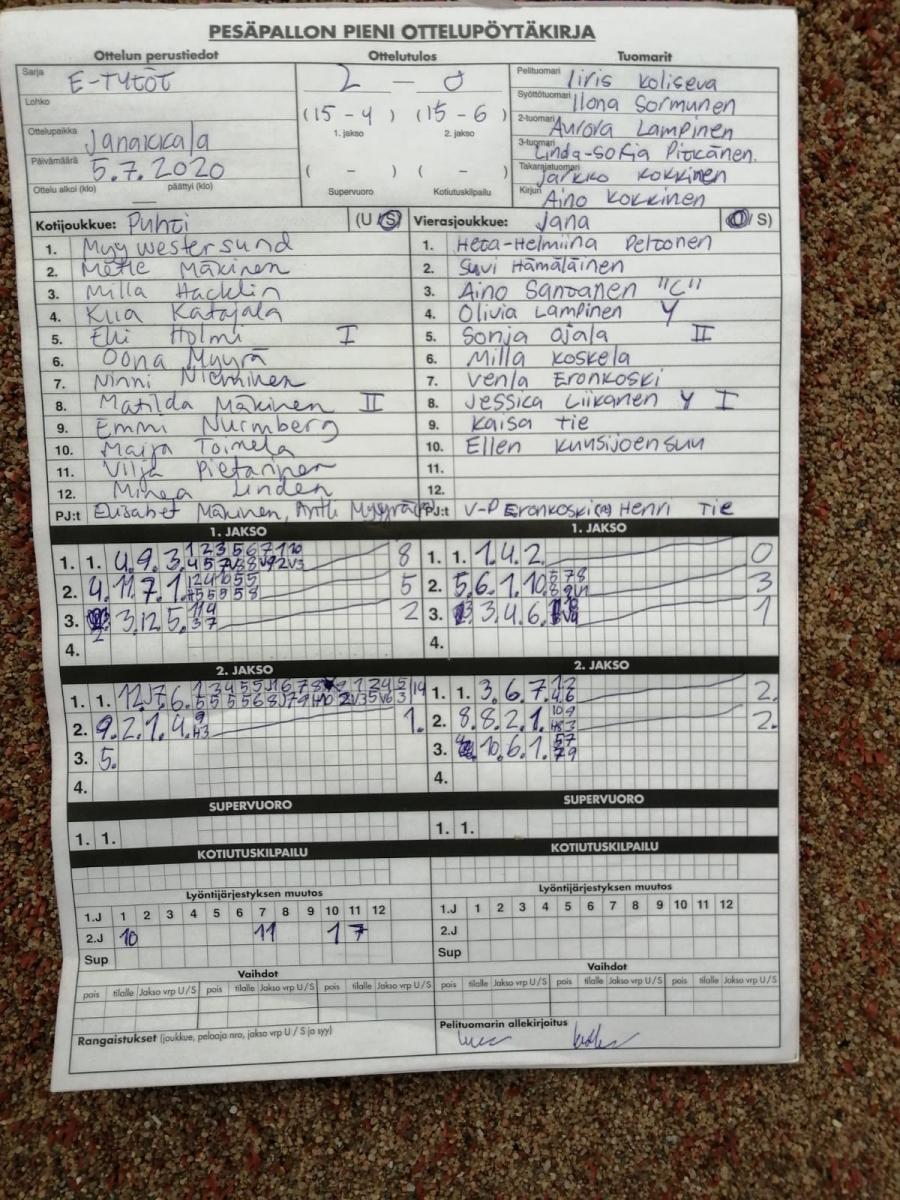 PESÄPALLON PIENI OTTELUPÖYTÄKIRJA
Ottelun perustiedot
Sarja E-TYTÖT
Lohko
Ottelupaikka Janakkala
Päivämäärä 5.7.2020
Ottelu alkoi (klo) päättyi (klo)
Ottelutulos
2 – 0
(15 - 4) (15 - 6)
1. jakso 2. jakso
( - ) ( - )
Supervuoro Kotiutuskilpailu
Tuomarit
Pelituomari Iiris Koliseva
Syöttötuomari Ilona Sormunen
2-tuomari Aurora Lampinen
3-tuomari Linda-Sofia Pitkänen.
Takarajatuomari Jarkko Kokkinen
Kirjuri Aino Kokkinen
Kotijoukkue: Puhti (U / S)
1. Myy Westersund
2. Mette Mäkinen
3. Milla Hacklin
4. Kiia Katajala
5. Elli Holmi I
6. Oona Myyrä
7. Ninni Nieminen
8. Matilda Mäkinen II
9. Emmi Nurmberg
10. Maija Toimela
11. Vilja Pietarinen
12. Minea Linden
PJ:t Elisabet Mäkinen, Antti Myyrä
Vierasjoukkue: Jana (U / S)
1. Heta-Helmiina Peltonen
2. Suvi Hämäläinen
3. Aino Santanen "C"
4. Olivia Lampinen Y
5. Sonja Ojala II
6. Milla Koskela
7. Venla Eronkoski
8. Jessica Liikanen Y I
9. Kaisa Tie
10. Ellen Kuusijoensuu
11.
12.
PJ:t V-P Eronkoski Henri Tie
1. JAKSO
1. 1. 4. 9. 3. 8
2. 4. 11. 7. 1. 5
3. 3. 12. 5. 2
4.
1. JAKSO
1. 1. 1. 4. 2. 0
2. 5. 6. 1. 10. 3
3. 3. 4. 6. 1
4.
2. JAKSO
1. 1. 12. 7. 6. 14
2. 9. 2. 1. 4. 1.
3. 5.
4.
2. JAKSO
1. 1. 3. 6. 7. 2.
2. 8. 8. 2. 1. 2.
3. 10. 6. 1.
4.
SUPERVUORO
1. 1.
SUPERVUORO
1. 1.
KOTIUTUSKILPAILU
KOTIUTUSKILPAILU
Lyöntijärjestyksen muutos
1.J 1 2 3 4 5 6 7 8 9 10 11 12
2.J 10 11 1 7
Sup
Lyöntijärjestyksen muutos
1.J 1 2 3 4 5 6 7 8 9 10 11 12
2.J
Sup
Vaihdot
pois tilalle Jakso vrp U/S pois tilalle Jakso vrp U/S pois tilalle Jakso vrp U/S
Vaihdot
pois tilalle Jakso vrp U/S pois tilalle Jakso vrp U/S pois tilalle Jakso vrp U/S
Rangaistukset (joukkue, pelaaja nro, jakso vrp U / S ja syy)
Pelituomarin allekirjoitus